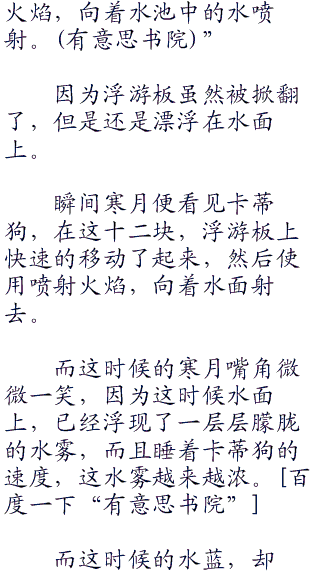 火焰，向着水池中的水喷
射。(有意思书院)”
因为浮游板虽然被掀翻
了，但是还是漂浮在水面
上。
瞬间寒月便看见卡蒂
狗，在这十二块，浮游板上
快速的移动了起来，然后使
用喷射火焰，向着水面射
去。
而这时候的寒月嘴角微
微一笑，因为这时候水面
上，已经浮现了一层层朦胧
的水雾，而且睡着卡蒂狗的
速度，这水雾越来越浓。[百
度一下“有意思书院”]
而这时候的水蓝，却